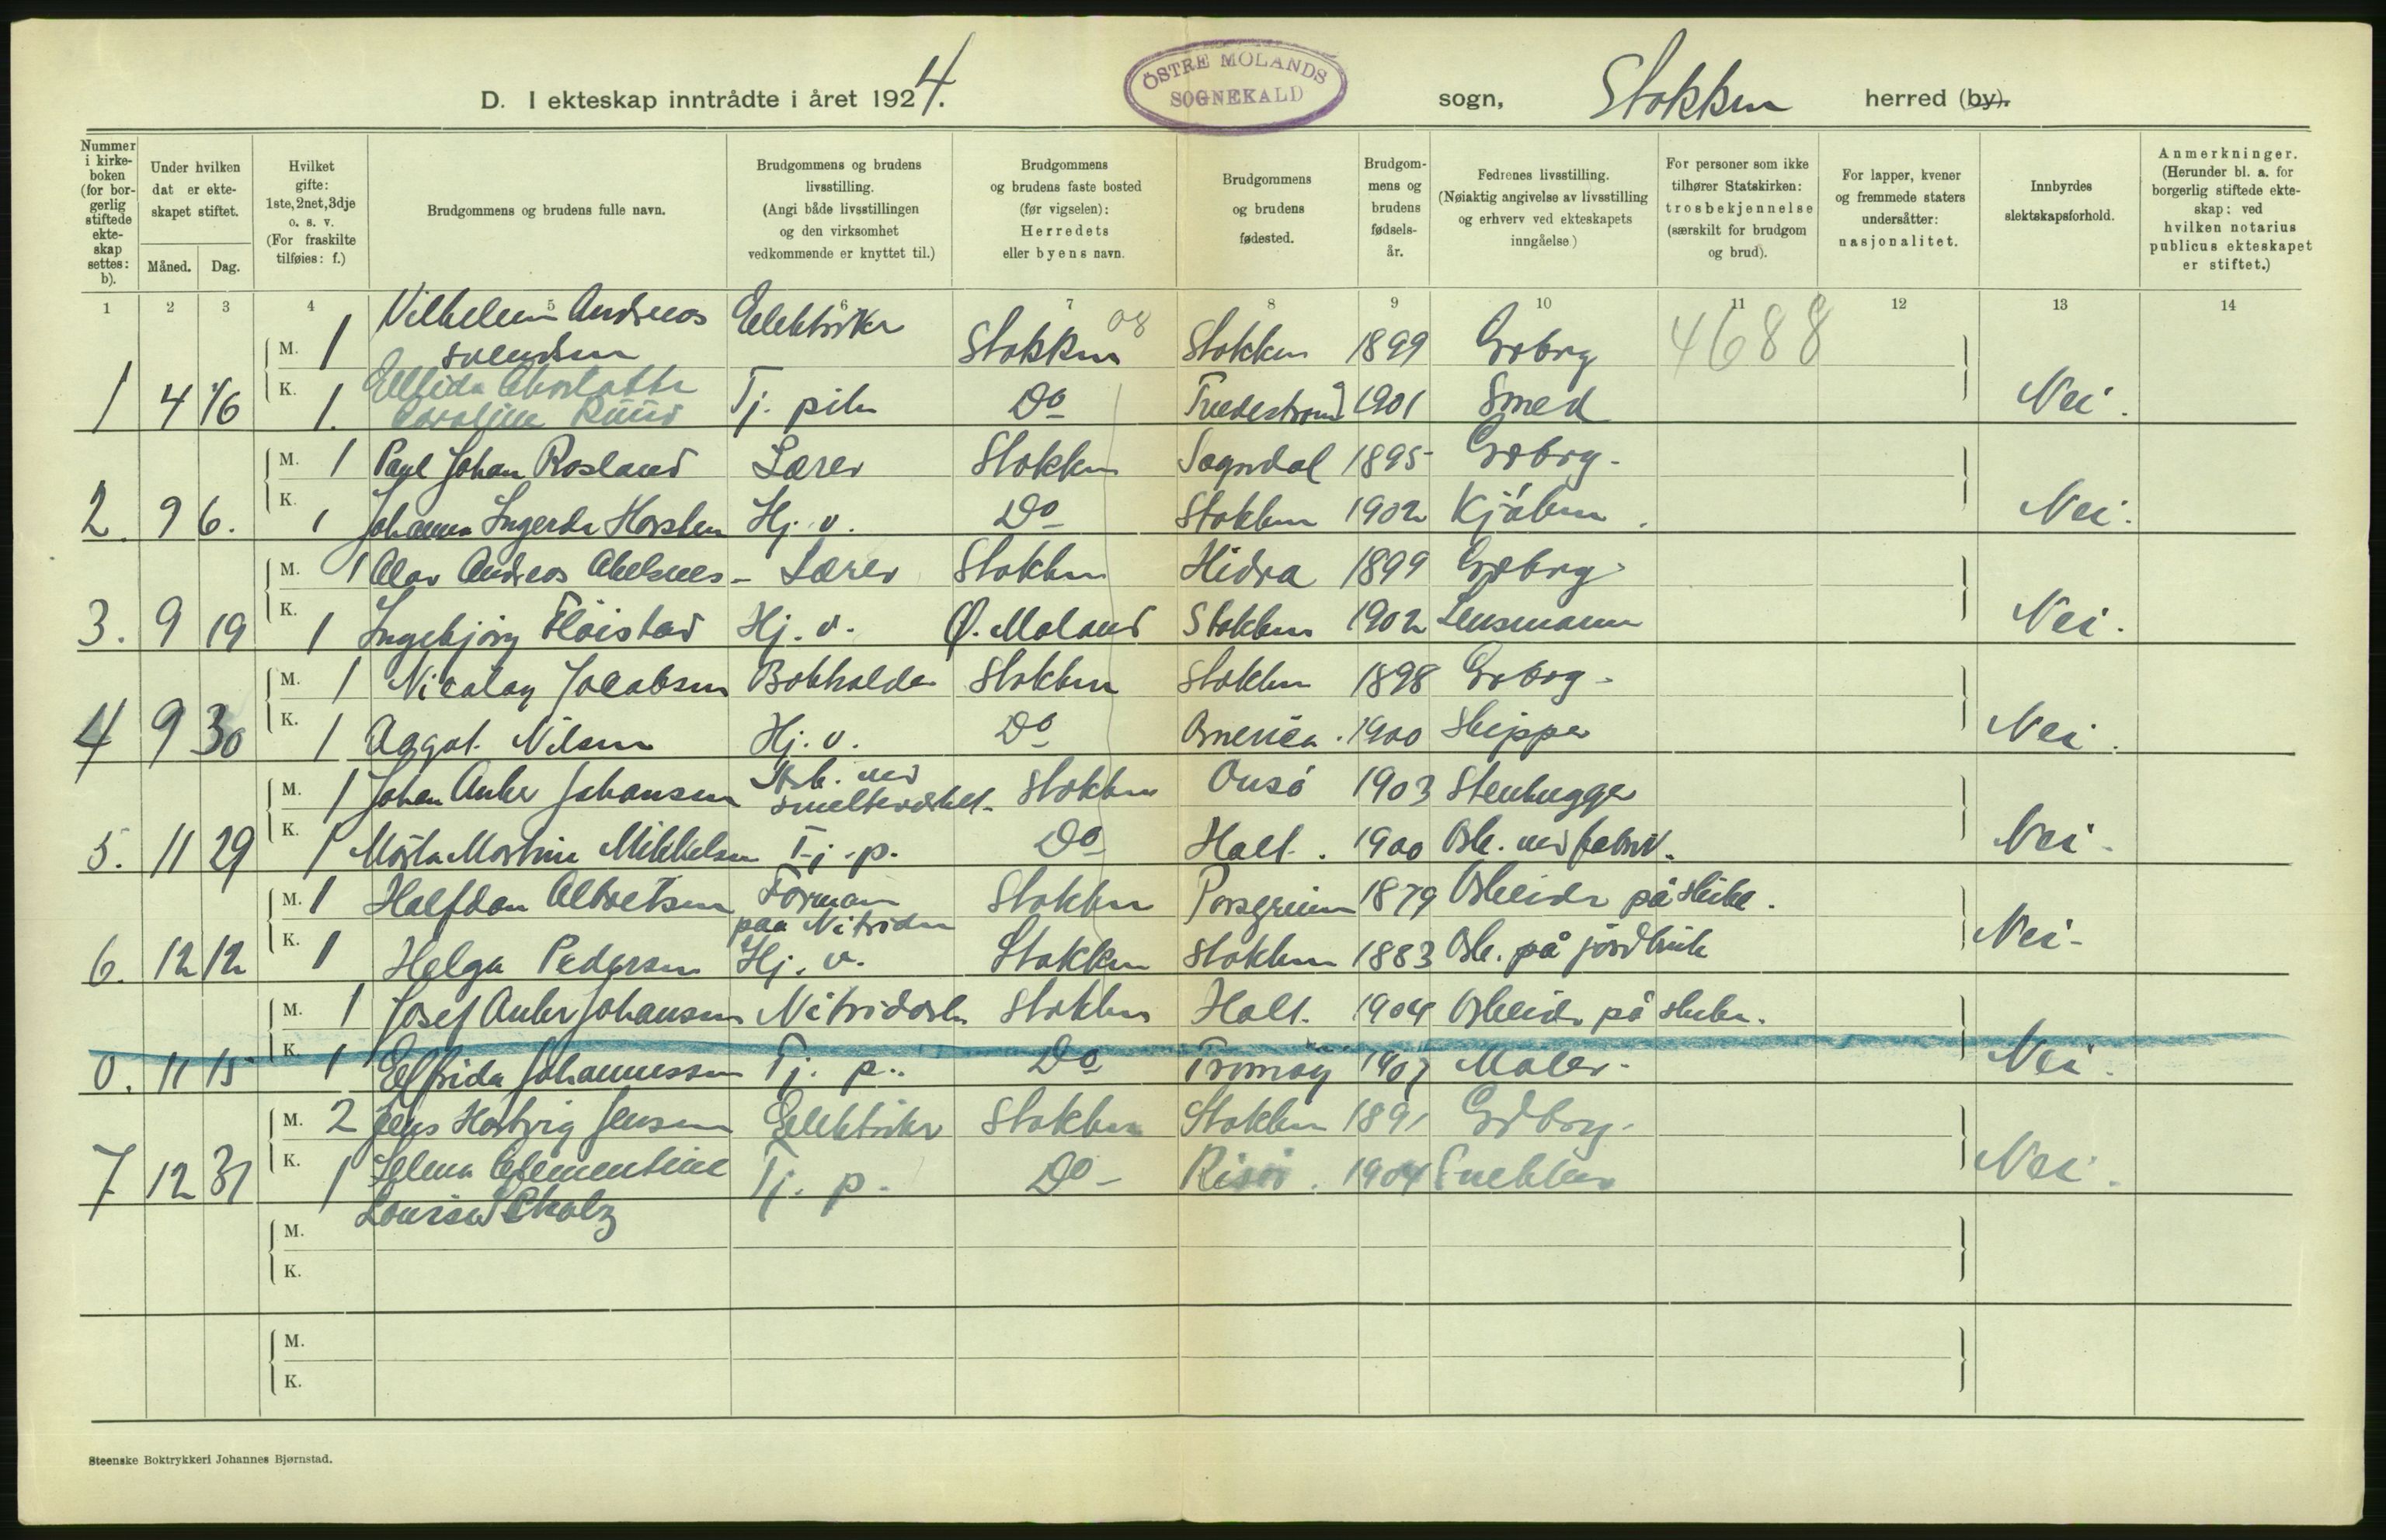 D. I ekteskap inntrådte i året 1924.
ÖSTRE MOLANDS SOGNEKALD
sogn, Stokken herred (by).
Nummer i kirkeboken (for borgerlig stiftede ekteskap settes: b).
Under hvilken dat er ekteskapet stiftet.
Måned. Dag.
Hvilket gifte: 1ste, 2net, 3dje o. s. v. (For fraskilte tilføies: f.)
Brudgommens og brudens fulle navn.
Brudgommens og brudens livsstilling. (Angi både livsstillingen og den virksomhet vedkommende er knyttet til.)
Brudgommens og brudens faste bosted (før vigselen): Herredets eller byens navn.
Brudgommens og brudens fødested.
Brudgommens og brudens fødselsår.
Fedrenes livsstilling. (Nøiaktig angivelse av livsstilling og erhverv ved ekteskapets inngåelse)
For personer som ikke tilhører Statskirken: trosbekjennelse (særskilt for brudgom og brud).
For lapper, kvener og fremmede staters undersåtter: nasjonalitet.
Innbyrdes slektskapsforhold.
Anmerkninger. (Herunder bl. a. for borgerlig stiftede ekteskap: ved hvilken notarius publicus ekteskapet er stiftet.)
1 2 3 4 5 6 7 8 9 10 11 12 13 14
M. 1 Vilhelm Andreas Svendsen Elektriker Stokken 08 Stokken 1899 Grbrg 4688
1 4 K. 1. Caroline Ruud Tj. pike Do Tvedestrand 1901 Smed Nei.
M. 1 Paul Johan Rosland Lærer Stokken Sogndal 1895 Grdbrg.
2. 9 6. K. 1 Johanna Ingerda Horsten Hj. v. Do Stokken 1902 Nei.
M. 1 Olav Andreas Abelsnes - Lærer Stokken Hidra 1899 Grdbrg.
3. 9 19 K. 1 Ingebjörg Flöistad Hj. v. Ø. Moland Stokken 1902 Lensmann Nei.
M. 1 Nicolay Jacobsen Bokholder Stokken Stokken 1898 Grbrg.
4 9 30 K. 1 Aagot Nilsen Hj. v. Do America. 1900 Skipper Nei.
M. 1 Johan Anker Johansen Arb. ved smelteverket. Stokken 1903 Stenhugger
5. 11 29 K. 1 Marta Martine Mikkelsen Tj. p. Do Holt. 1900 Arb. ved fabrik. Nei.
M. 1 Halfdan Albretsen Forman paa Nitriden Stokken Porsgrunn 1879 Arbeider på
6. 12 12 K. 1 Helga Pedersen Hj. v. Stokken Stokken 1883 Arb. på jordbruk Nei-
M. 1 Josef Anker Johansen Nitridarb. Stokken Holt. 1904 Arbeider på
0. 11 15 K. 1 Elfrida Johannessen Tj. p. Do Tromøy 1907 Maler. Nei.
M. 2 Jens Hartvig Jensen Elektriker Stokken Stokken 1891 Grdbrg.
7 12 31 K. 1 Selma Clementine Louise Scholz Tj. p. Do - Risör. 1904 Snekker Nei.
M.
K.
M.
K.
Steenske Boktrykkeri Johannes Bjørnstad.